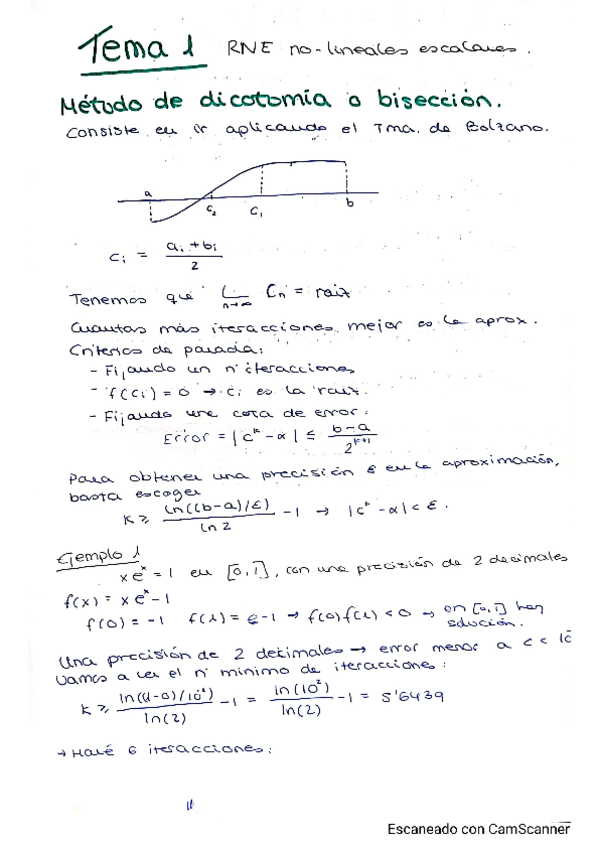 Tema 1 RNE no-lineales escalares.
Método de dicotomía o bisección.
Consiste en ir aplicando el Tma. de Bolzano.
a c₂ c₁ b
cᵢ = (aᵢ + bᵢ)/2
Tenemos que L_{n→∞} Cn = raiz
Cuantas más iteracciones, mejor es la aprox.
Criterios de parada:
- Fijando un nº iteracciones
- f(cᵢ) = 0 → cᵢ es la raiz.
- Fijando una cota de error:
Error = |c^k - α| ≤ (b-a)/2^{k+1}
Para obtener una precisión ε en la aproximación,
basta escoger
k ≥ ln((b-a)/ε)/ln 2 - 1 → |c^k - α| < ε.
Ejemplo 1
x e^x = 1 en [0,1], con una precisión de 2 decimales
f(x) = x e^x - 1
f(0) = -1 f(1) = e-1 → f(0)f(1) < 0 → en [0,1] hay
solución.
Una precisión de 2 decimales → error menor a
Vamos a ver el nº mínimo de iteracciones:
k ≥ ln((1-0)/10^-2)/ln(2) - 1 = ln(10^2)/ln(2) - 1 = 5'6439
→ Haré 6 iteracciones:
Escaneado con CamScanner